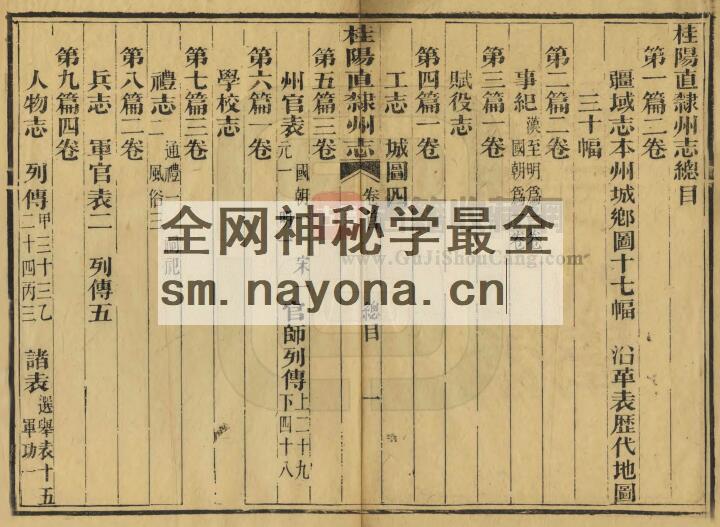 桂陽直隸州志總目
第一篇二卷
疆域志本州城鄉圖十七幅　沿革表歷代地圖
三十幅
第二篇二卷
事紀
漢至明爲
國朝爲
第三篇　卷
賦役志
第四篇一卷
工志　城圖四
桂陽直隸州志
總目
一
第五篇三卷
州官表
國朝
元一
宋
官師列傳
上二十九
下四十八
第六篇一卷
學校志
第七篇三卷
禮志一
通禮一
祀
風俗三
第八篇二卷
兵志　軍官表二　列傳五
第九篇四卷
人物志　列傳
甲三十三乙
二十四丙三
諸表
選舉表十五
軍功一
全网神秘学最全
sm.nayona.cn
www.GuJiShouCang.com